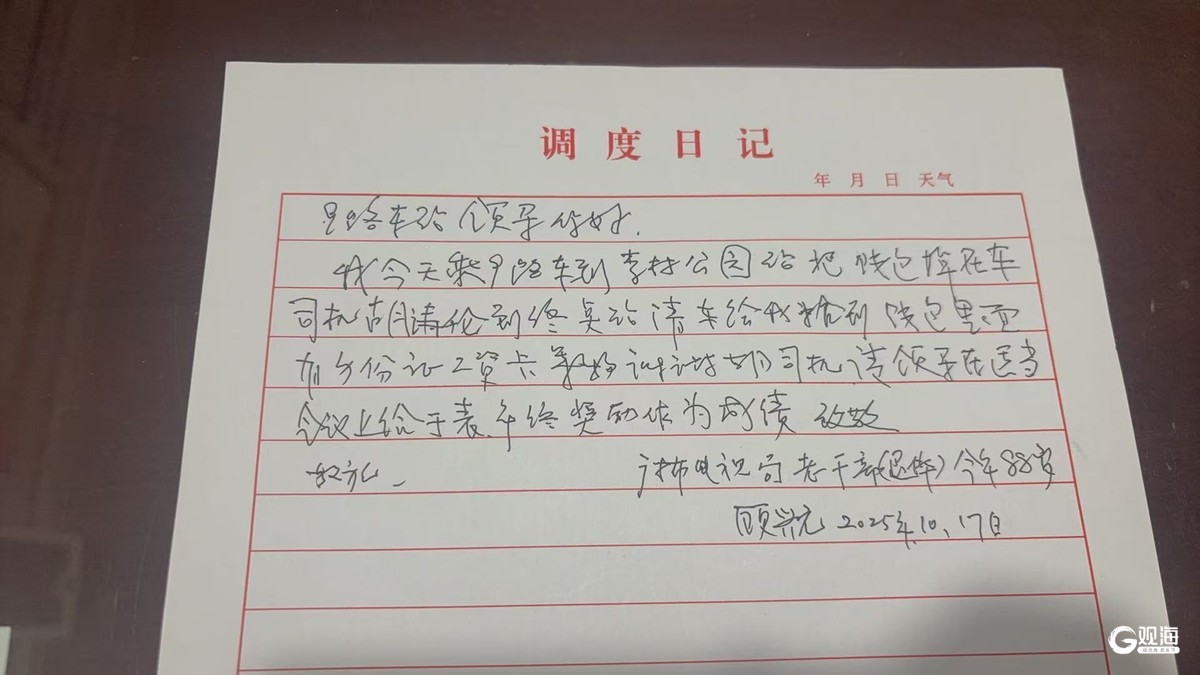 调度日记
年 月 日 天气
路车站领导你好.
我今天乘9路车到李村公园站把钱包掉在车
司机胡清伦到终点站清车给我捡到钱包里面
有身份证工资卡 司机请领导在适当
会议上给于表.年终奖励作为成绩
敬礼 广播电视局老干部(退休)今年88岁
顾 2025年.10.17日
观海